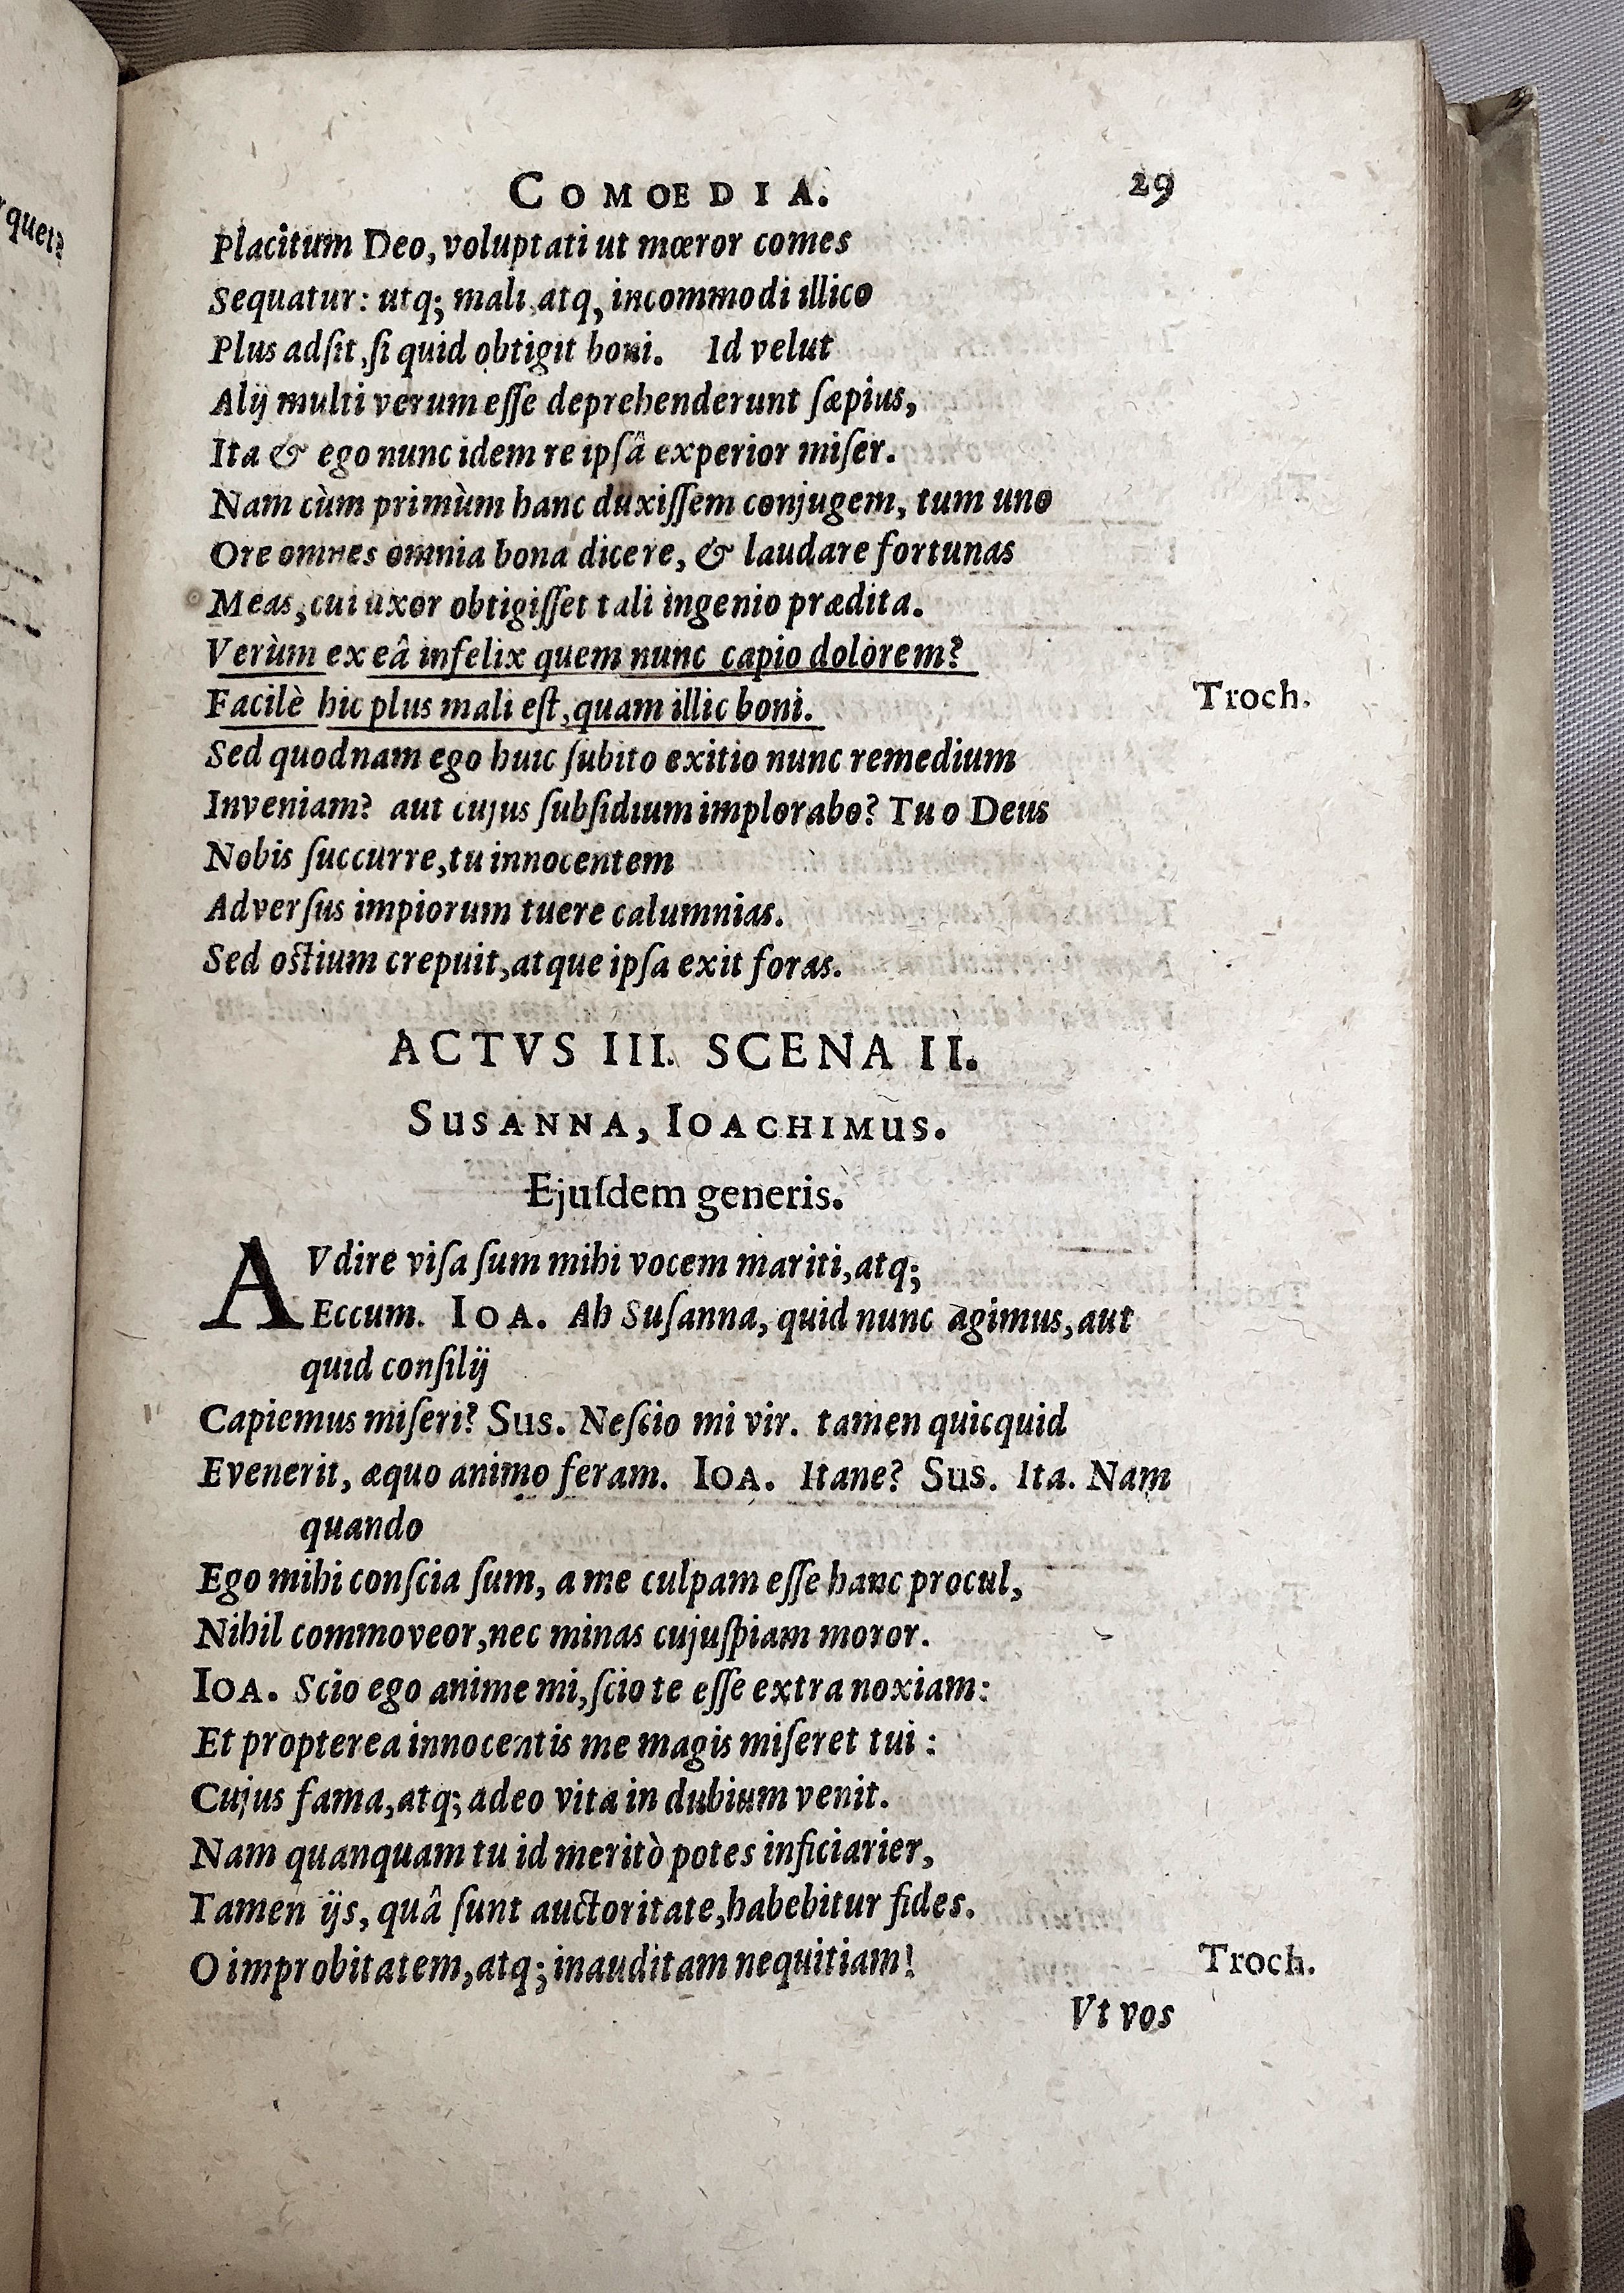 quet?
COMOEDIA. 29
Placitum Deo, voluptati ut mœror comes
Sequatur: utq; mali atq, incommodi illico
Plus adſit, ſi quid obtigit boni. Id velut
Alij multi verum eſſe deprehenderunt ſæpius,
Ita & ego nunc idem re ipſâ experior miſer.
Nam cùm primùm hanc duxiſſem conjugem, tum uno
Ore omnes omnia bona dicere, & laudare fortunas
Meas, cui uxor obtigiſſet tali ingenio prædita.
Verùm ex eâ infelix quem nunc capio dolorem?
Facilè hic plus mali eſt, quam illic boni. Troch.
Sed quodnam ego huic ſubito exitio nunc remedium
Inveniam? aut cujus ſubſidium implorabo? Tu o Deus
Nobis ſuccurre, tu innocentem
Adverſus impiorum tuere calumnias.
Sed oſtium crepuit, atque ipſa exit foras.
ACTVS III. SCENA II.
SusANNA, IOACHIMUS.
Ejuſdem generis.
AVdire viſa ſum mihi vocem mariti, atq;
Eccum. IOA. Ah Suſanna, quid nunc agimus, aut
quid conſilij
Capiemus miſeri? Sus. Neſcio mi vir. tamen quicquid
Evenerit, æquo animo feram. IOA. Itane? Sus. Ita. Nam
quando
Ego mihi conſcia ſum, a me culpam eſſe hanc procul,
Nihil commoveor, nec minas cujuſpiam moror.
IOA. Scio ego anime mi, ſcio te eſſe extra noxiam:
Et propterea innocentis me magis miſeret tui:
Cujus fama, atq; adeo vita in dubium venit.
Nam quanquam tu id meritò potes inficiarier,
Tamen ijs, quâ ſunt auctoritate, habebitur fides.
O improbitatem, atq; inauditam nequitiam! Troch.
Vt vos